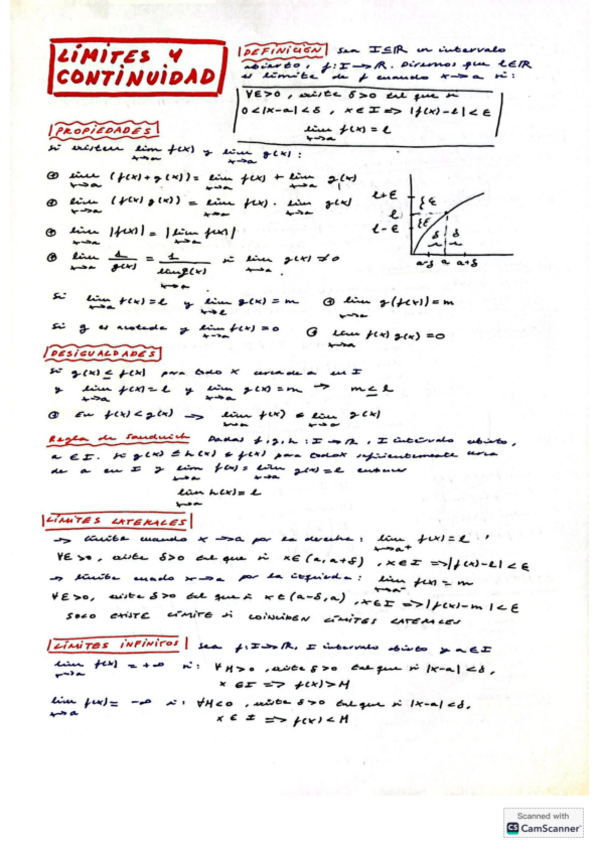 LÍMITES Y CONTINUIDAD
DEFINICIÓN Sea I⊆ℝ un intervalo
abierto, f: I→ℝ. Diremos que l∈ℝ
es límite de f cuando x→a si:
∀ε>0, existe δ>0 tal que si
0<|x-a|<δ, x∈I => |f(x)-l|<ε
lim x→a f(x)=l
PROPIEDADES
Si existen lim x→a f(x) y lim x→a g(x):
lim x→a (f(x)+g(x)) = lim x→a f(x) + lim x→a g(x)
lim x→a (f(x)g(x)) = lim x→a f(x) · lim x→a g(x)
lim x→a |f(x)| = |lim x→a f(x)|
lim x→a 1/g(x) = 1/lim x→a g(x) si lim x→a g(x) ≠0
l+ε
l
l-ε
{ε
{ε
δ δ
a-δ a a+δ
Si lim x→a f(x)=l y lim x→l g(x)=m lim x→a g(f(x))=m
Si g es acotada y lim x→a f(x)=0 lim x→a f(x)g(x)=0
DESIGUALDADES
Si g(x) ≤ f(x) para todo x cercano a a en I
y lim x→a f(x)=l y lim x→a g(x)=m → m≤l
En f(x)<g(x) => lim x→a f(x) ≤ lim x→a g(x)
Regla de Sandwich Dadas f,g,h: I→ℝ, I intervalo abierto,
a∈I. Si g(x) ≤ h(x) ≤ f(x) para todo x suficientemente cerca
de a en I y lim x→a f(x)= lim x→a g(x)=l entonces
lim x→a h(x)=l
LÍMITES LATERALES
→ Límite cuando x→a por la derecha: lim x→a⁺ f(x)=l
∀ε>0, existe δ>0 tal que si x∈(a,a+δ), x∈I =>|f(x)-l|<ε
→ límite cuando x→a por la izquierda: lim x→a⁻ f(x)=m
∀ε>0, existe δ>0 tal que si x∈(a-δ,a), x∈I =>|f(x)-m|<ε
SOLO EXISTE LÍMITE SI COINCIDEN LÍMITES LATERALES
LÍMITES INFINITOS Sea f: I→ℝ, I intervalo abierto y a∈I
lim x→a f(x) = +∞ si: ∀M>0, existe δ>0 tal que si |x-a|<δ,
x∈I => f(x)>M
lim x→a f(x)= -∞ si: ∀M<0, existe δ>0 tal que si |x-a|<δ,
x∈I => f(x)<M
Scanned with
CS CamScanner